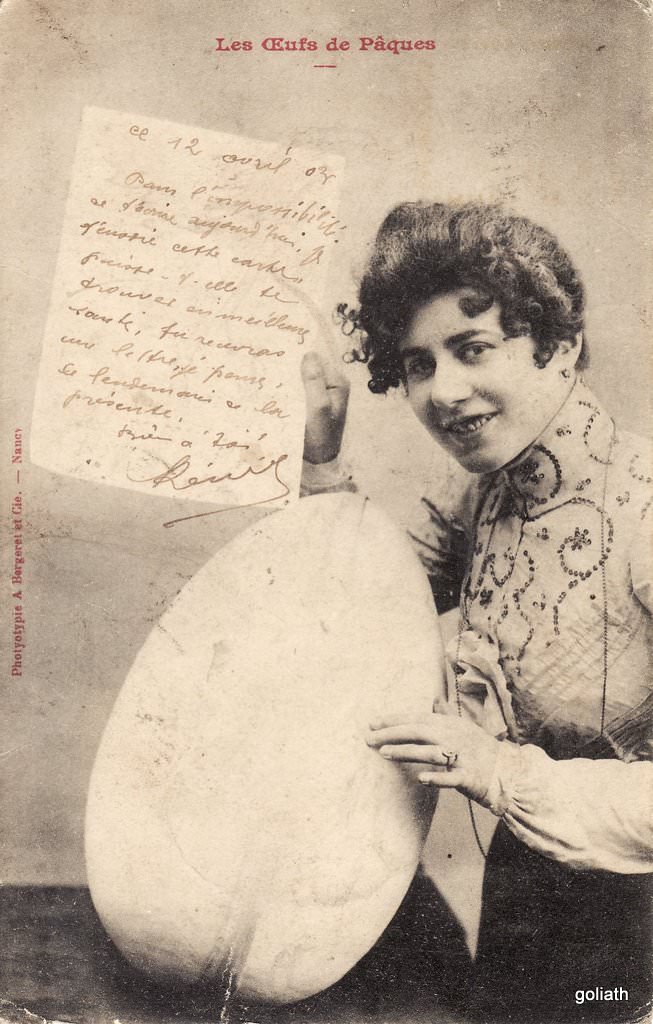 Les Œufs de Pâques
ce 12 avril 03
Dans l'impossibilité
de t'écrire aujourd'hui, je
t'envoie cette carte,
puisse-t-elle te
trouver en meilleure
santé, tu recevras
une lettre, je pense,
le lendemain de la
présente.
Bien à toi
Phototypie A. Bergeret et Cie. — Nancy
goliath